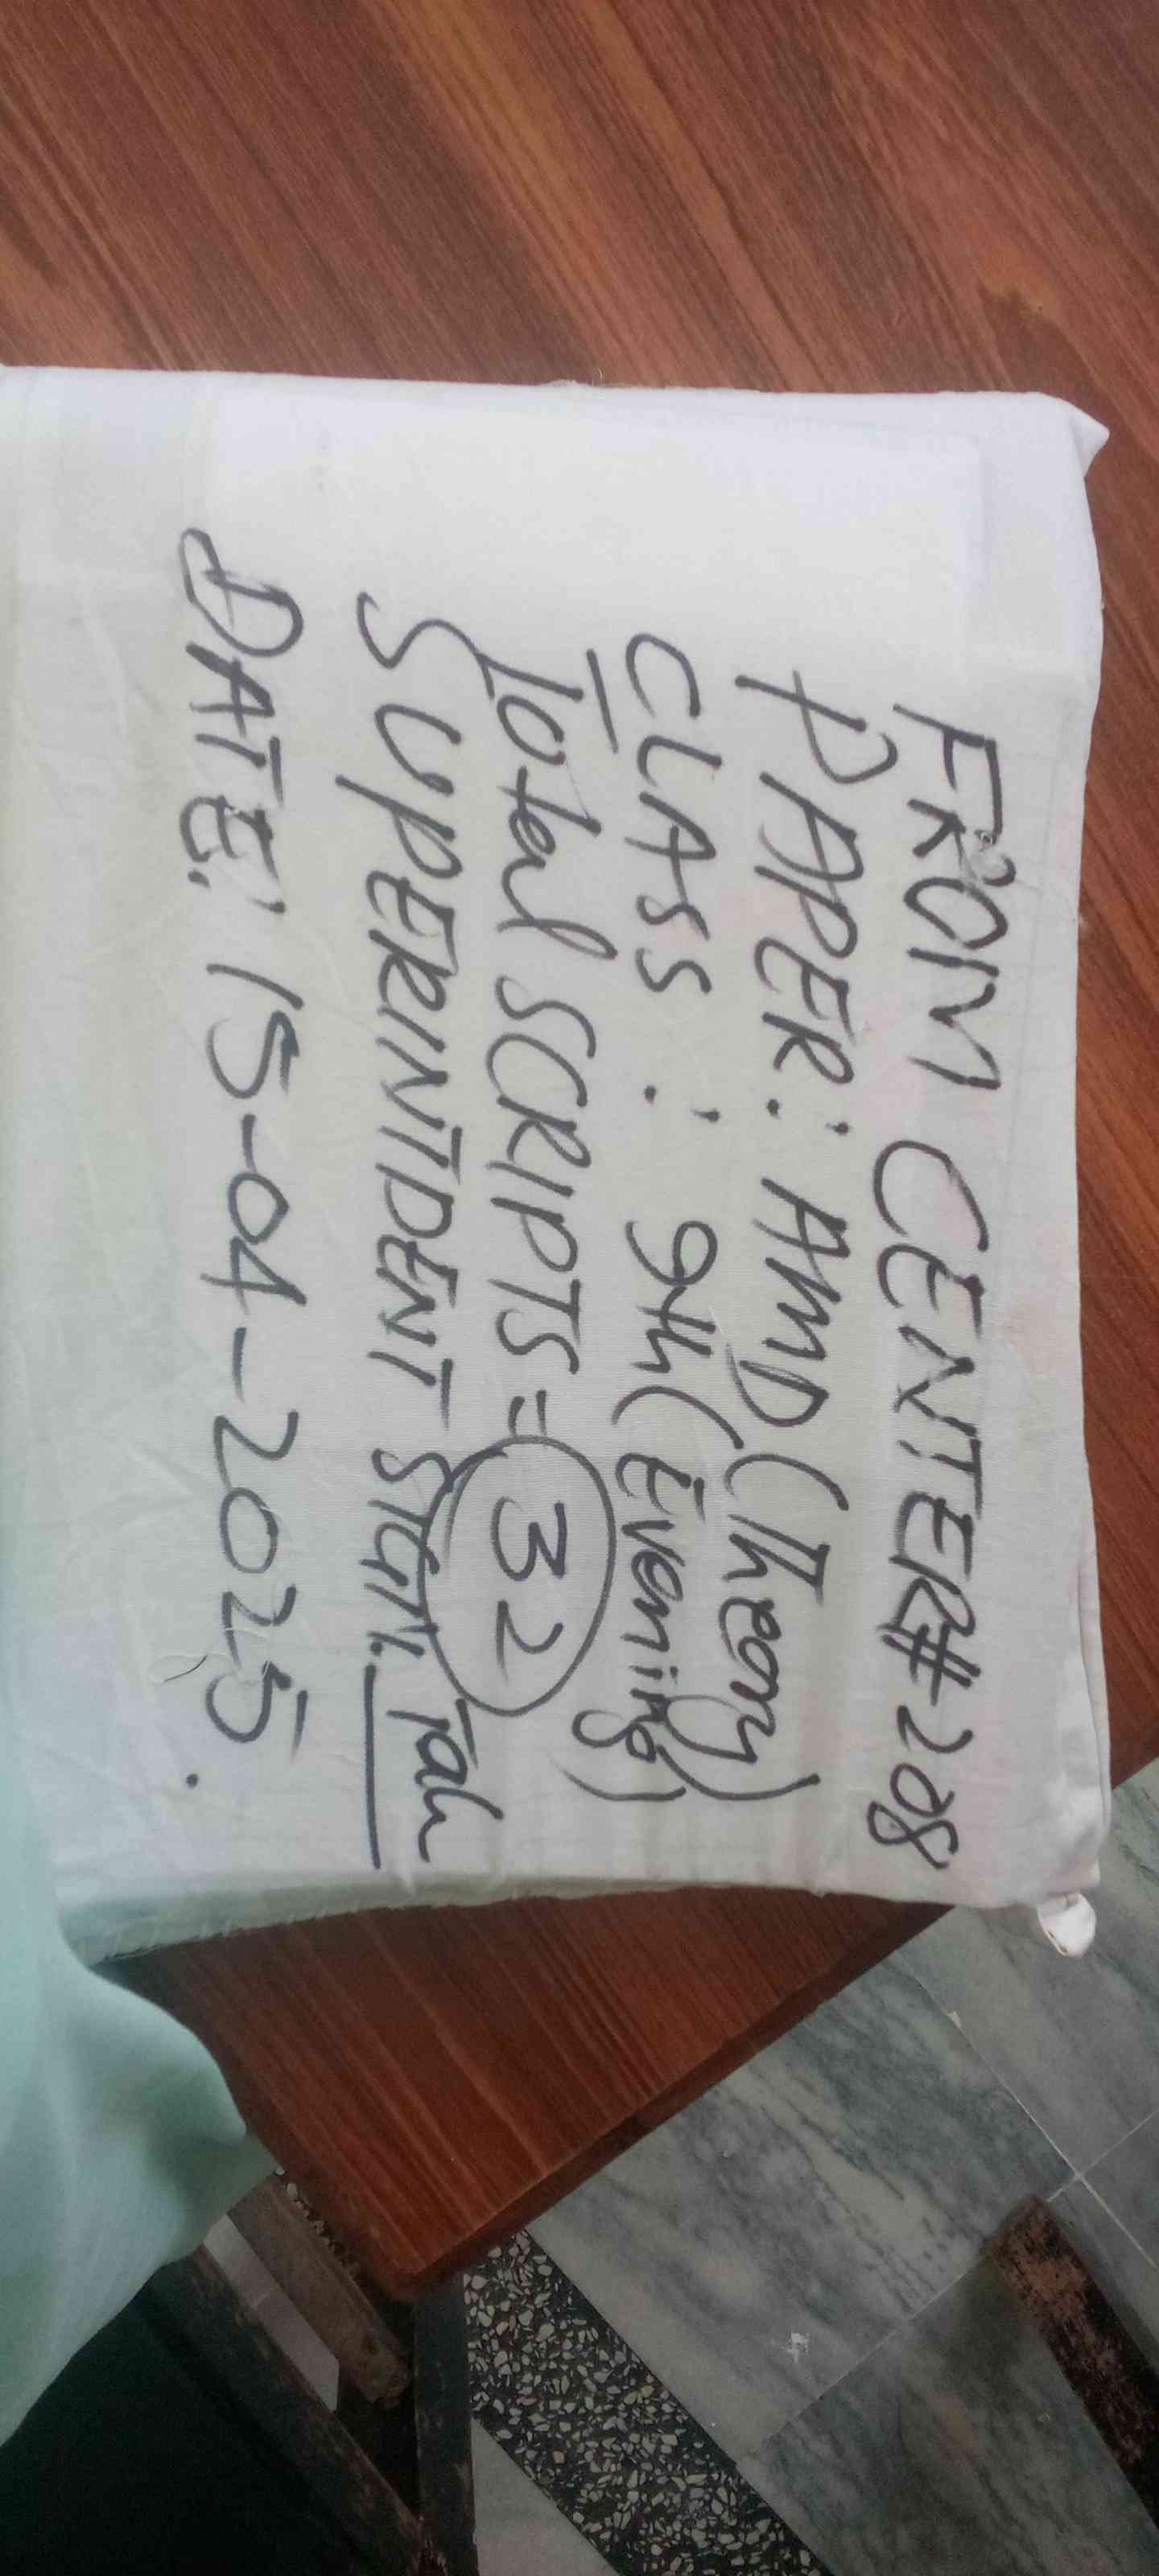 FROM CENTER# 208
PAPER: AMD (Theory)
CLASS : 9th (Evening)
Total SCRIPTS = 32
SUPERINTDENT SIGN.
DATE: 15-04-2025.